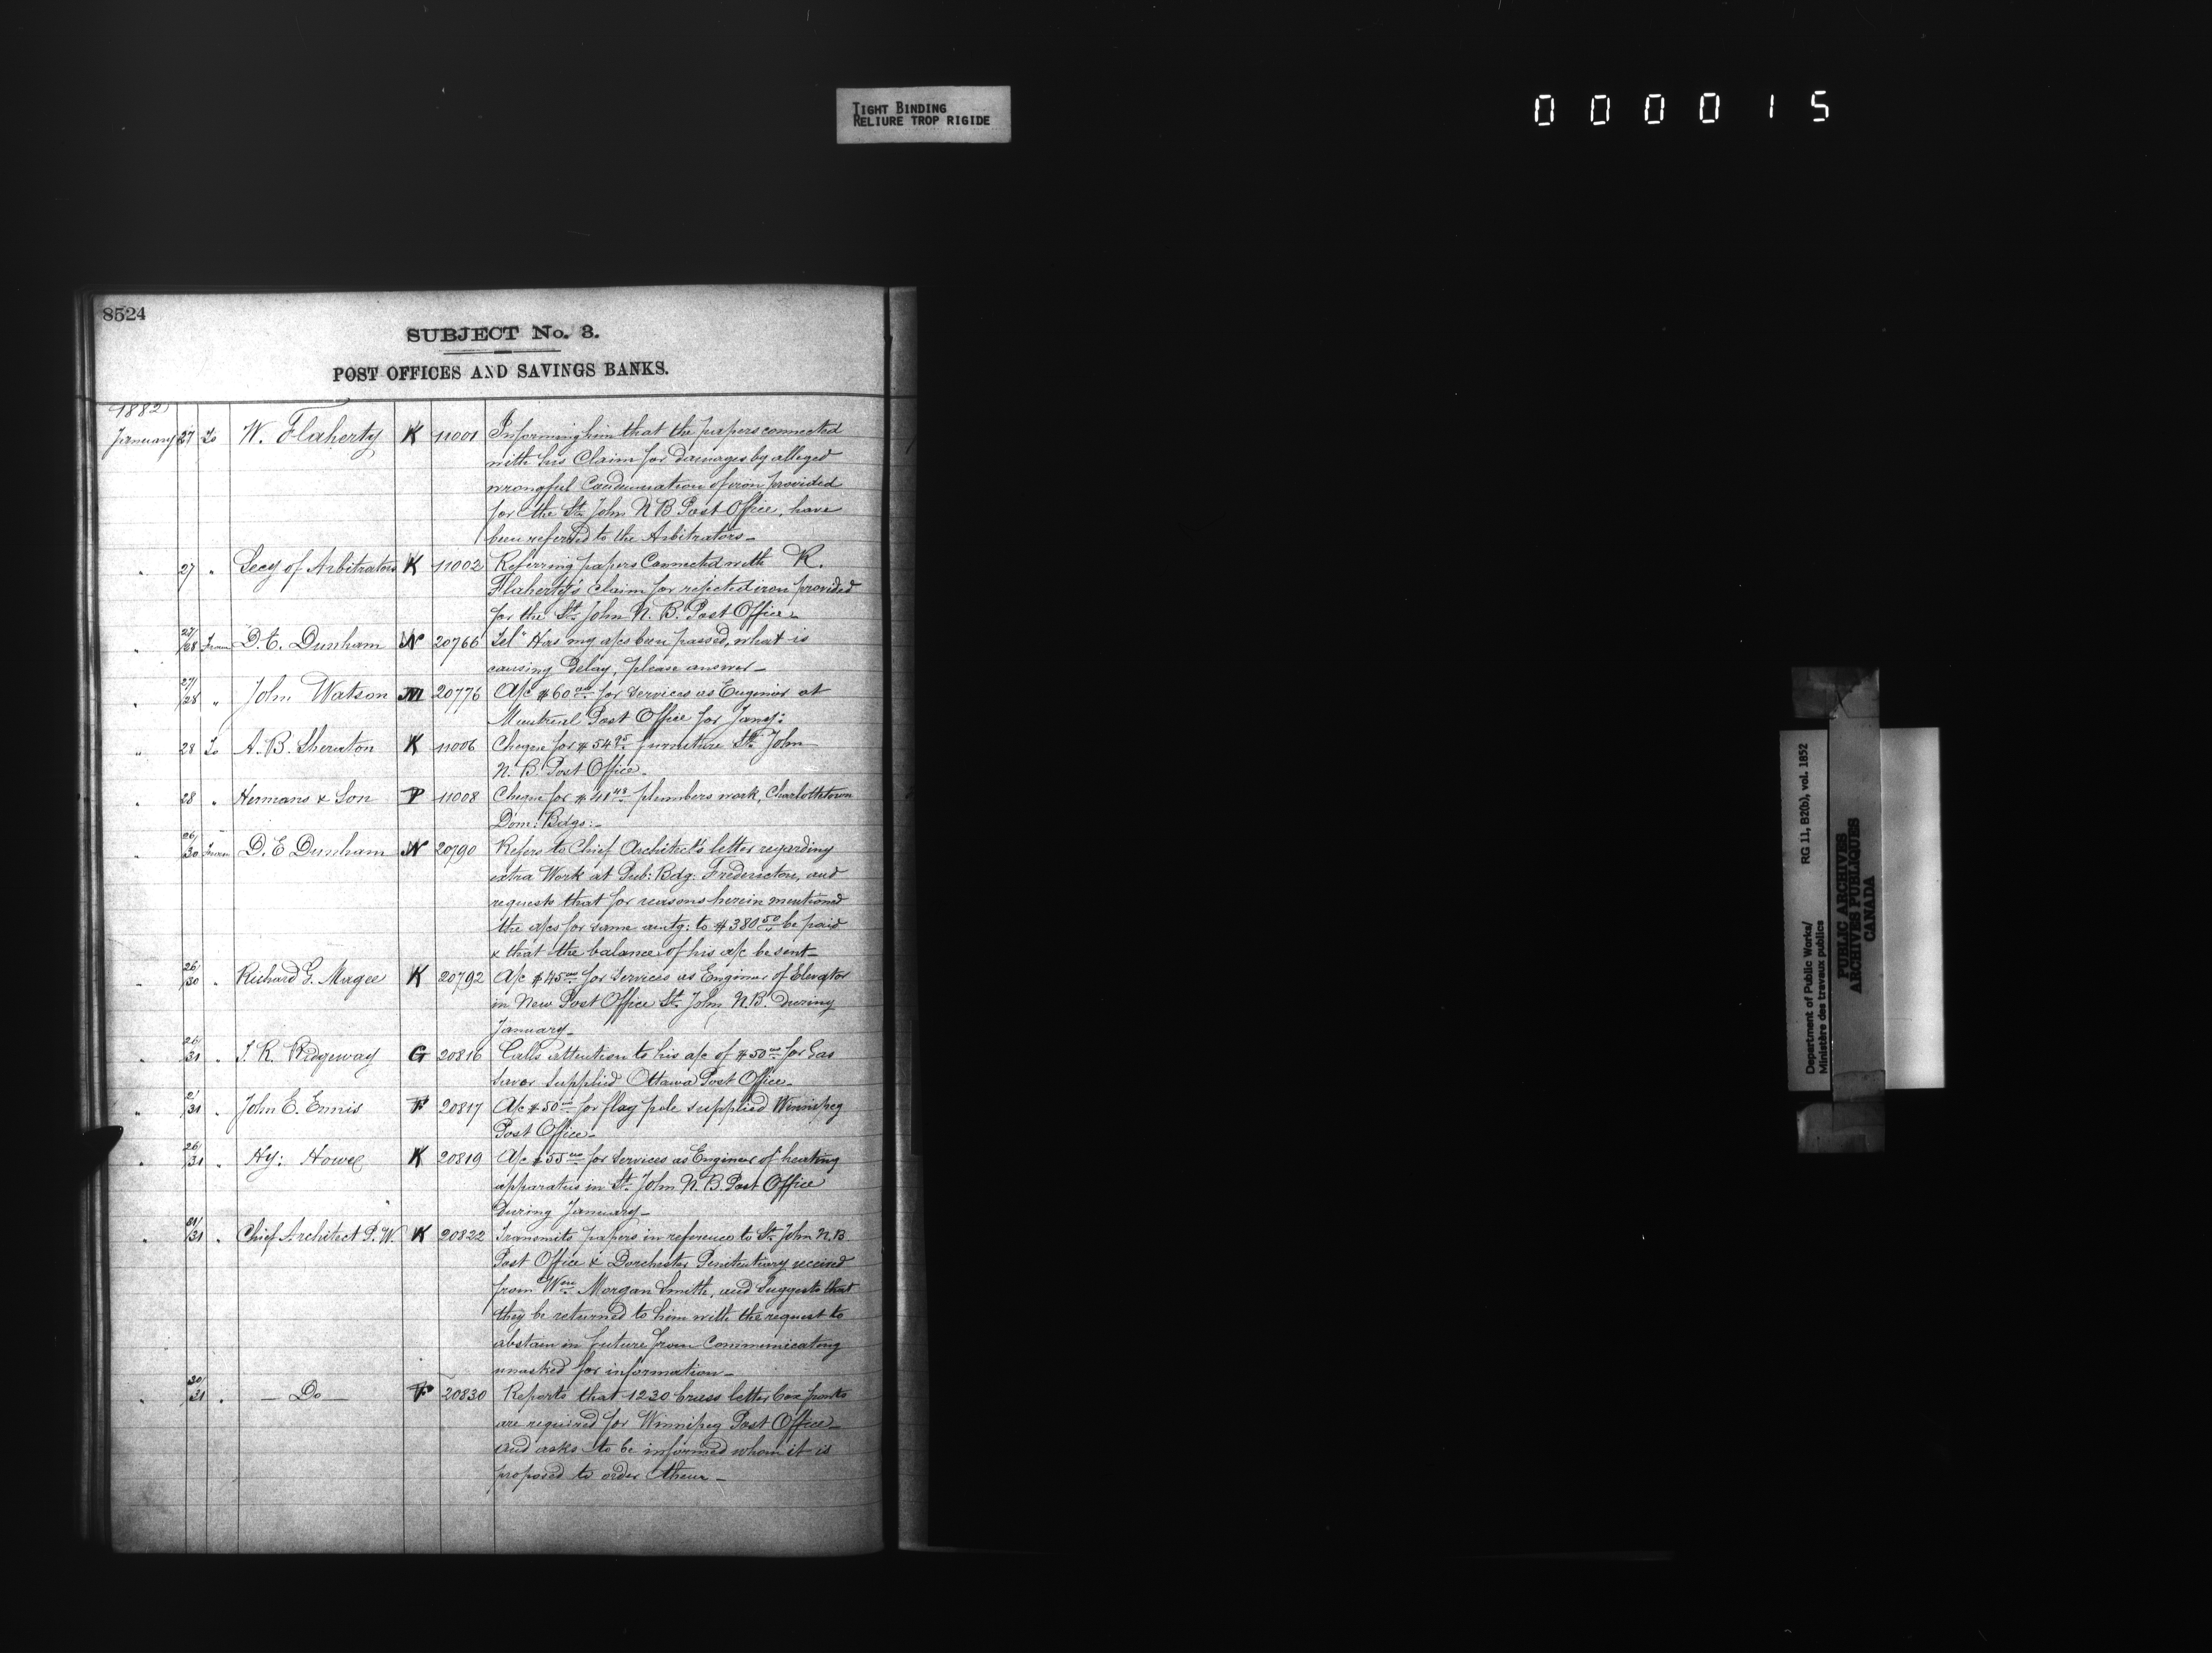 TIGHT BINDING
RELIURE TROP RIGIDE
000015
8524
SUBJECT No. 3.
POST OFFICES AND SAVINGS BANKS.
1882
January 27 To W. Flaherty K 11001 Informing him that the papers connected
with his Claim for damages by alleged
wrongful Condemnation of iron provided
for the St. John N B Post Office, have
been referred to the Arbitrators_
" 27 " Secy of Arbitrators K 11002 Referring papers Connected with R.
Flaherty's claim for rejected iron provided
for the St. John N. B. Post Office_
" 27/28 From D. E. Dunham N 20766 Tel" Has my a/cs been passed, what is
causing delay, please answer_
" 27/28 " John Watson M 20776 A/c $60 00 for services as Engineer at
Montreal Post Office for Jany:
" 28 To A. B. Sheraton K 11006 Cheque for $54 95 furniture St. John
N. B. Post Office_
" 28 " Hermans & Son P 11008 Cheque for $41 48 plumbers work, Charlottetown
Dom: Bdgs:_
" 26/30 From D. E Dunham N 20790 Refers to Chief Architect's letter regarding
extra Work at Pub: Bdg: Fredericton, and
requests that for reasons herein mentioned
the a/cs for same amtg: to $380 50 be paid
& that the balance of his a/c be sent_
" 26/30 " Richard G. Magee K 20792 A/c $45 00 for services as Engineer of Elevator
in New Post Office St. John, N.B. during
January_
" 26/31 " T. R. Ridgeway G 20816 Calls attention to his a/c of $50 00 for Gas
saver supplied Ottawa Post Office_
" 31 " John E. Ennis F 20817 A/c $50 00 for flag pole supplied Winnipeg
Post Office_
" 26/31 " Hy: Howe K 20819 A/c $55 00 for services as Engineer of heating
apparatus in St. John N. B. Post Office
during January_
" 31/31 " Chief Architect P. W. K 20822 Transmits papers in reference to St. John N.B.
Post Office & Dorchester Penitentiary received
from Wm Morgan Smith, and suggests that
they be returned to him with the request to
abstain in future from Communicating
unasked for information_
" 30/31 " — Do — F 20830 Reports that 1230 brass letter box fronts
are required for Winnipeg Post Office_
and asks to be informed whom it is
proposed to order them_
Department of Public Works/ RG 11, B2(b), vol. 1852
Ministère des travaux publics
PUBLIC ARCHIVES
ARCHIVES PUBLIQUES
CANADA